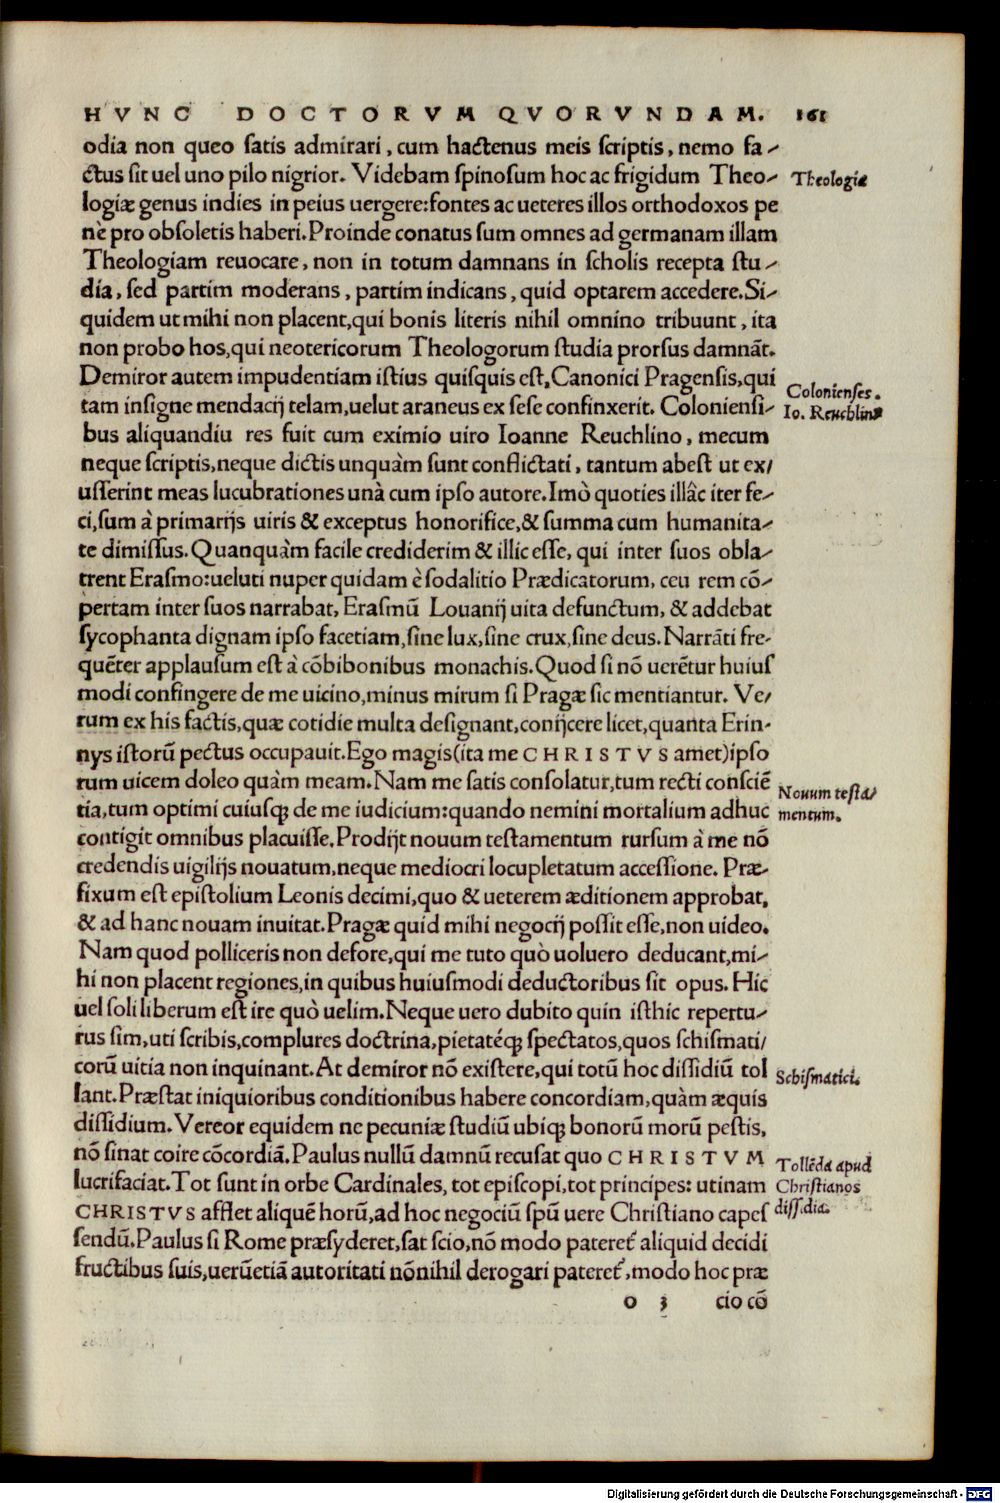 HVNC DOCTORVM QVORVNDAM. 161
odia non queo ſatis admirari, cum hactenus meis ſcriptis, nemo fa-
ctus ſit uel uno pilo nigrior. Videbam ſpinoſum hoc ac frigidum Theo-
Theologiæ
logiæ genus indies in peius uergere:fontes ac ueteres illos orthodoxos pe
nè pro obſoletis haberi. Proinde conatus ſum omnes ad germanam illam
Theologiam reuocare, non in totum damnans in ſcholis recepta ſtu-
dia, ſed partim moderans, partim indicans, quid optarem accedere. Si-
quidem ut mihi non placent, qui bonis literis nihil omnino tribuunt, ita
non probo hos, qui neotericorum Theologorum ſtudia prorſus damnāt.
Demiror autem impudentiam iſtius quiſquis eſt, Canonici Pragenſis, qui
Colonienſes.
tam inſigne mendacij telam, uelut araneus ex ſeſe confinxerit. Colonienſi-
Io. Reuchlinꝰ
bus aliquandiu res fuit cum eximio uiro Ioanne Reuchlino, mecum
neque ſcriptis, neque dictis unquàm ſunt conflictati, tantum abeſt ut ex/
uſſerint meas lucubrationes unà cum ipſo autore. Imò quoties illâc iter fe-
ci, ſum à primarijs uiris & exceptus honorifice, & ſumma cum humanita-
te dimiſſus. Quanquàm facile crediderim & illic eſſe, qui inter ſuos obla-
trent Eraſmo: ueluti nuper quidam è ſodalitio Prædicatorum, ceu rem cō-
pertam inter ſuos narrabat, Eraſmū Louanij uita defunctum, & addebat
ſycophanta dignam ipſo facetiam, ſine lux, ſine crux, ſine deus. Narrāti fre-
quēter applauſum eſt à cōbibonibus monachis. Quod ſi nō uerētur huiuſ
modi confingere de me uicino, minus mirum ſi Pragæ ſic mentiantur. Ve/
rum ex his factis, quæ cotidie multa deſignant, conijcere licet, quanta Erin-
nys iſtorū pectus occupauit. Ego magis(ita me CHRISTVS amet)ipſo
rum uicem doleo quàm meam. Nam me ſatis conſolatur, tum recti conſciē
Nouum teſta/
tia, tum optimi cuiuſqꝫ de me iudicium: quando nemini mortalium adhuc
mentum.
contigit omnibus placuiſſe. Prodijt nouum teſtamentum rurſum à me nō
credendis uigilijs nouatum, neque mediocri locupletatum acceſſione. Præ-
fixum eſt epiſtolium Leonis decimi, quo & ueterem æditionem approbat,
& ad hanc nouam inuitat. Pragæ quid mihi negocij poſſit eſſe, non uideo.
Nam quod polliceris non defore, qui me tuto quò uoluero deducant, mi-
hi non placent regiones, in quibus huiuſmodi deductoribus ſit opus. Hic
uel ſoli liberum eſt ire quò uelim. Neque uero dubito quin iſthic repertu-
rus ſim, uti ſcribis, complures doctrina, pietatéqꝫ ſpectatos, quos ſchiſmati/
corū uitia non inquinant. At demiror nō exiſtere, qui totū hoc diſſidiū tol
Schiſmatici.
lant. Præſtat iniquioribus conditionibus habere concordiam, quàm æquis
diſſidium. Vereor equidem ne pecuniæ ſtudiū ubiqꝫ bonorū morū peſtis,
nō ſinat coire cōcordiā. Paulus nullū damnū recuſat quo CHRISTVM
Tollēda apud
lucrifaciat. Tot ſunt in orbe Cardinales, tot epiſcopi, tot principes: utinam
Chriſtianos
CHRISTVS afflet aliquē horū, ad hoc negociū ſpū uere Chriſtiano capeſ
diſſidia.
ſendū. Paulus ſi Rome præſyderet, ſat ſcio, nō modo pateret᷑ aliquid decidi
fructibus ſuis, uerūetiā autoritati nōnihil derogari pateret᷑, modo hoc præ
o 3 cio cō
Digitalisierung gefördert durch die Deutsche Forschungsgemeinschaft - DFG